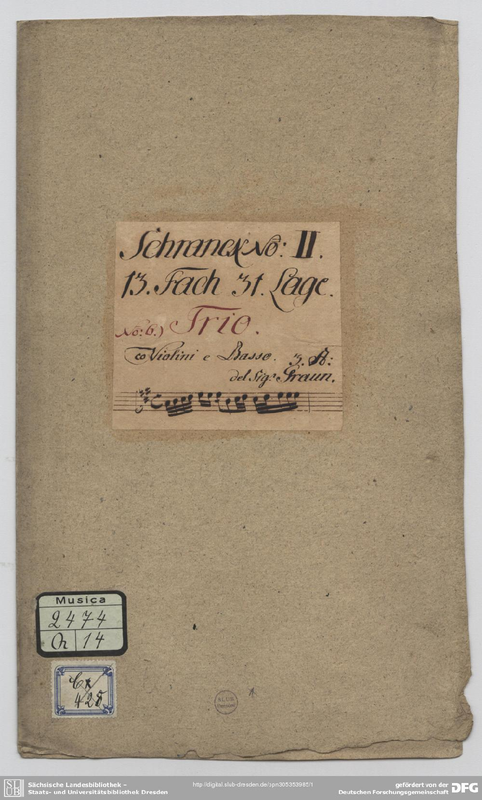 Schranck No: II.
13. Fach 31. Lage.
No: 6.) Trio.
co Violini e Basso. 3. St:
del Sigr Graun.
Musica
2474
O 14
Cx
428
Sächsische Landesbibliothek –
Staats- und Universitätsbibliothek Dresden
http://digital.slub-dresden.de/
gefördert von der
Deutschen Forschungsgemeinschaft
DFG